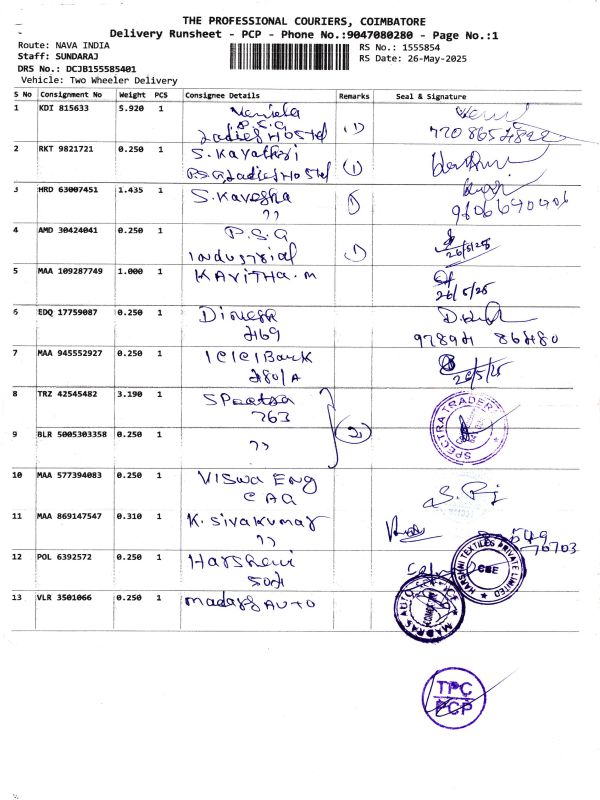 THE PROFESSIONAL COURIERS, COIMBATORE
Delivery Runsheet - PCP - Phone No.:9047080280 - Page No.:1
Route: NAVA INDIA
RS No.: 1555854
Staff: SUNDARAJ
RS Date: 26-May-2025
DRS No.: DCJB155585401
Vehicle: Two Wheeler Delivery
S No Consignment No Weight PCS Consignee Details Remarks Seal & Signature
1 KDI 815633 5.920 1
P.S.G
Ladies Hostel
2 RKT 9821721 0.250 1 S. Kavathri
P.S.G Ladies Hostel
3 HRD 63007451 1.435 1 S. Kavesha
"
4 AMD 30424041 0.250 1 P.S.G
Industrial
26/5/25
5 MAA 109287749 1.000 1 KAVITHA.M
26/5/25
6 EDQ 17759087 0.250 1 Dinesh
469
7 MAA 945552927 0.250 1 ICICI Bank
480/A
26/5/25
8 TRZ 42545482 3.190 1 Spectra
763
SPECTRA TRADERS
9 BLR 5005303358 0.250 1 " 2
10 MAA 577394083 0.250 1 VISWA ENG
11 MAA 869147547 0.310 1 K. Sivakumar
"
12 POL 6392572 0.250 1 Harshni
504
HARSHNI TEXTILES PRIVATE LIMITED
CBE
13 VLR 3501066 0.250 1 Madras AUTO
MADRAS AUTO SERVICE
TPC
PCP